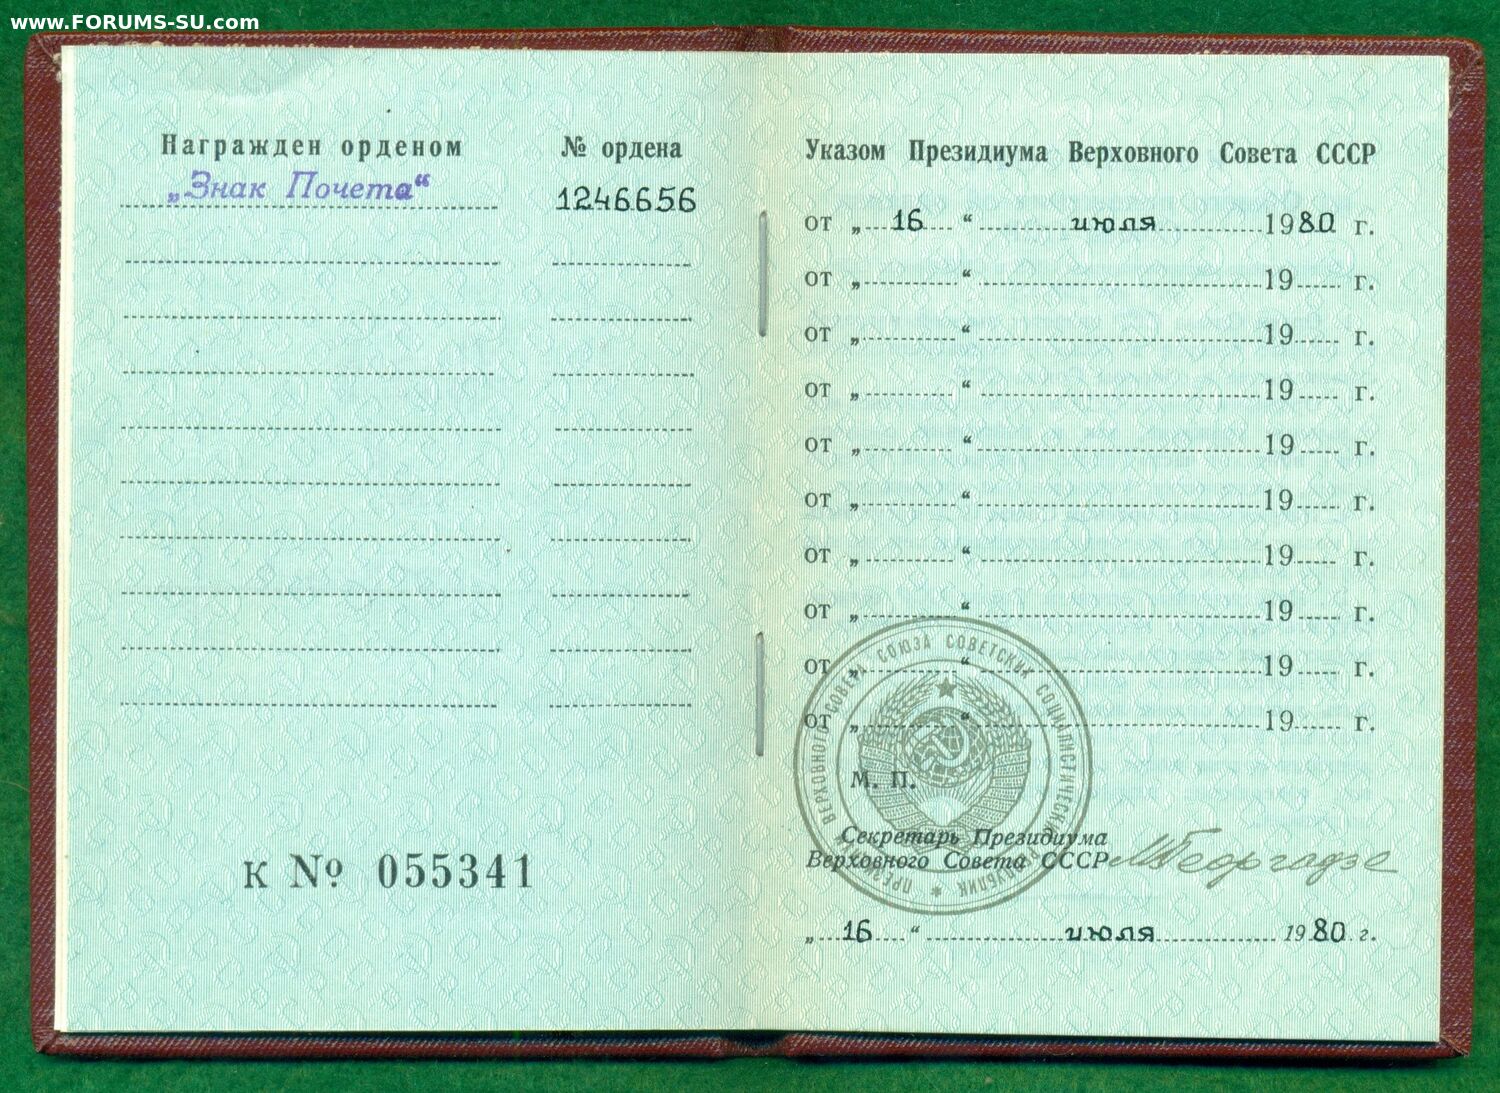 www.FORUMS-SU.com
Награжден орденом
№ ордена
„Знак Почета“
1246656
Указом Президиума Верховного Совета СССР
от „ 16 “ июля 1980 г.
от „ “ 19 г.
от „ “ 19 г.
от „ “ 19 г.
от „ “ 19 г.
от „ “ 19 г.
от „ “ 19 г.
от „ “ 19 г.
от „ “ 19 г.
от „ “ 19 г.
ПРЕЗИДИУМ ВЕРХОВНОГО СОВЕТА СОЮЗА СОВЕТСКИХ СОЦИАЛИСТИЧЕСКИХ РЕСПУБЛИК
М. П.
Секретарь Президиума
Верховного Совета СССР МГеоргадзе
„ 16 “ июля 1980 г.
К № 055341